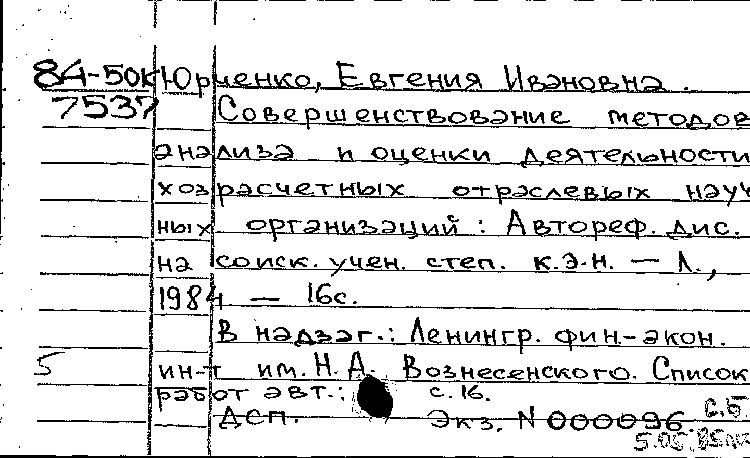 84-50к Юрченко, Евгения Ивановна.
7537 Совершенствование методов
анализа и оценки деятельности
хозрасчетных отраслевых науч-
ных организаций: Автореф. дис.
на соиск. учен. степ. к.э.н. — Л.,
1984 — 16с.
В надзаг.: Ленингр. фин-экон.
5 ин-т им. Н.А. Вознесенского. Список
работ авт.: с. 16.
ДСП. Экз. N 000096. С.Б
5.05.85